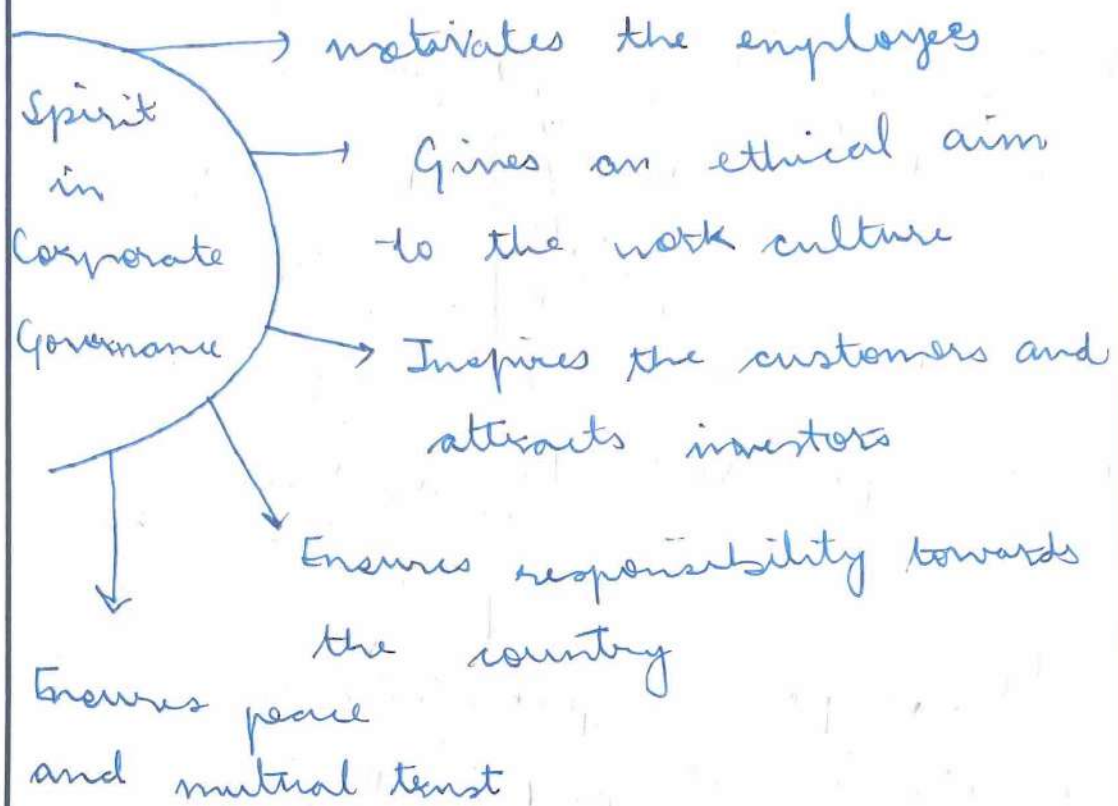 Spirit
in
Corporate
Governance
motivates the employees
Gives an ethical aim
to the work culture
Inspires the customers and
attracts investors
Ensures responsibility towards
the country
Ensures peace
and mutual trust